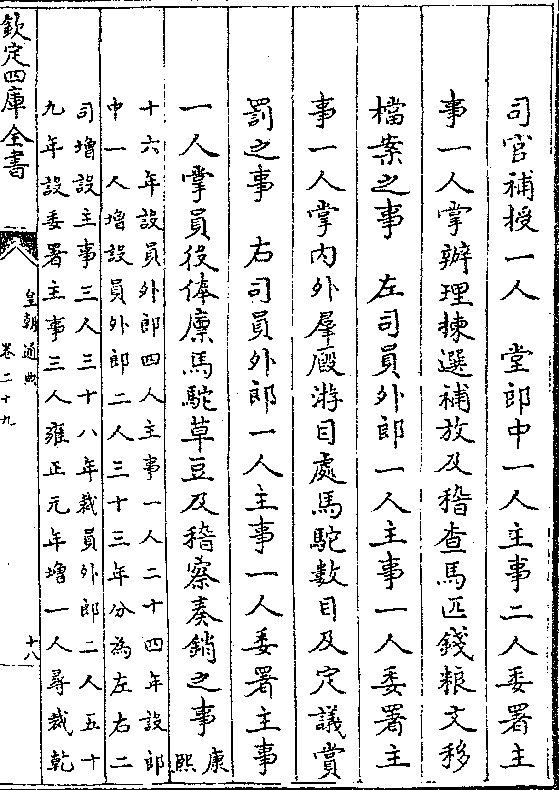 司官補授一人　堂郎中一人主事二人委署主
事一人掌辦理揀選補放及稽查馬匹錢糧文移
檔案之事　左司員外郎一人主事一人委署主
事一人掌内外羣廐游目處馬駝數目及定議賞
罰之事　右司員外郎一人主事一人委署主事
一人掌員役俸廩馬駝草豆及稽察奏銷之事康熙
十六年設員外郎四人主事一人二十四年設郎
中一人增設員外郎二人三十三年分為左右二
司增設主事三人三十八年裁員外郎二人五十
九年設委署主事三人雍正元年增一人尋裁乾
欽定四庫全書
皇朝通典
卷二十九
十八